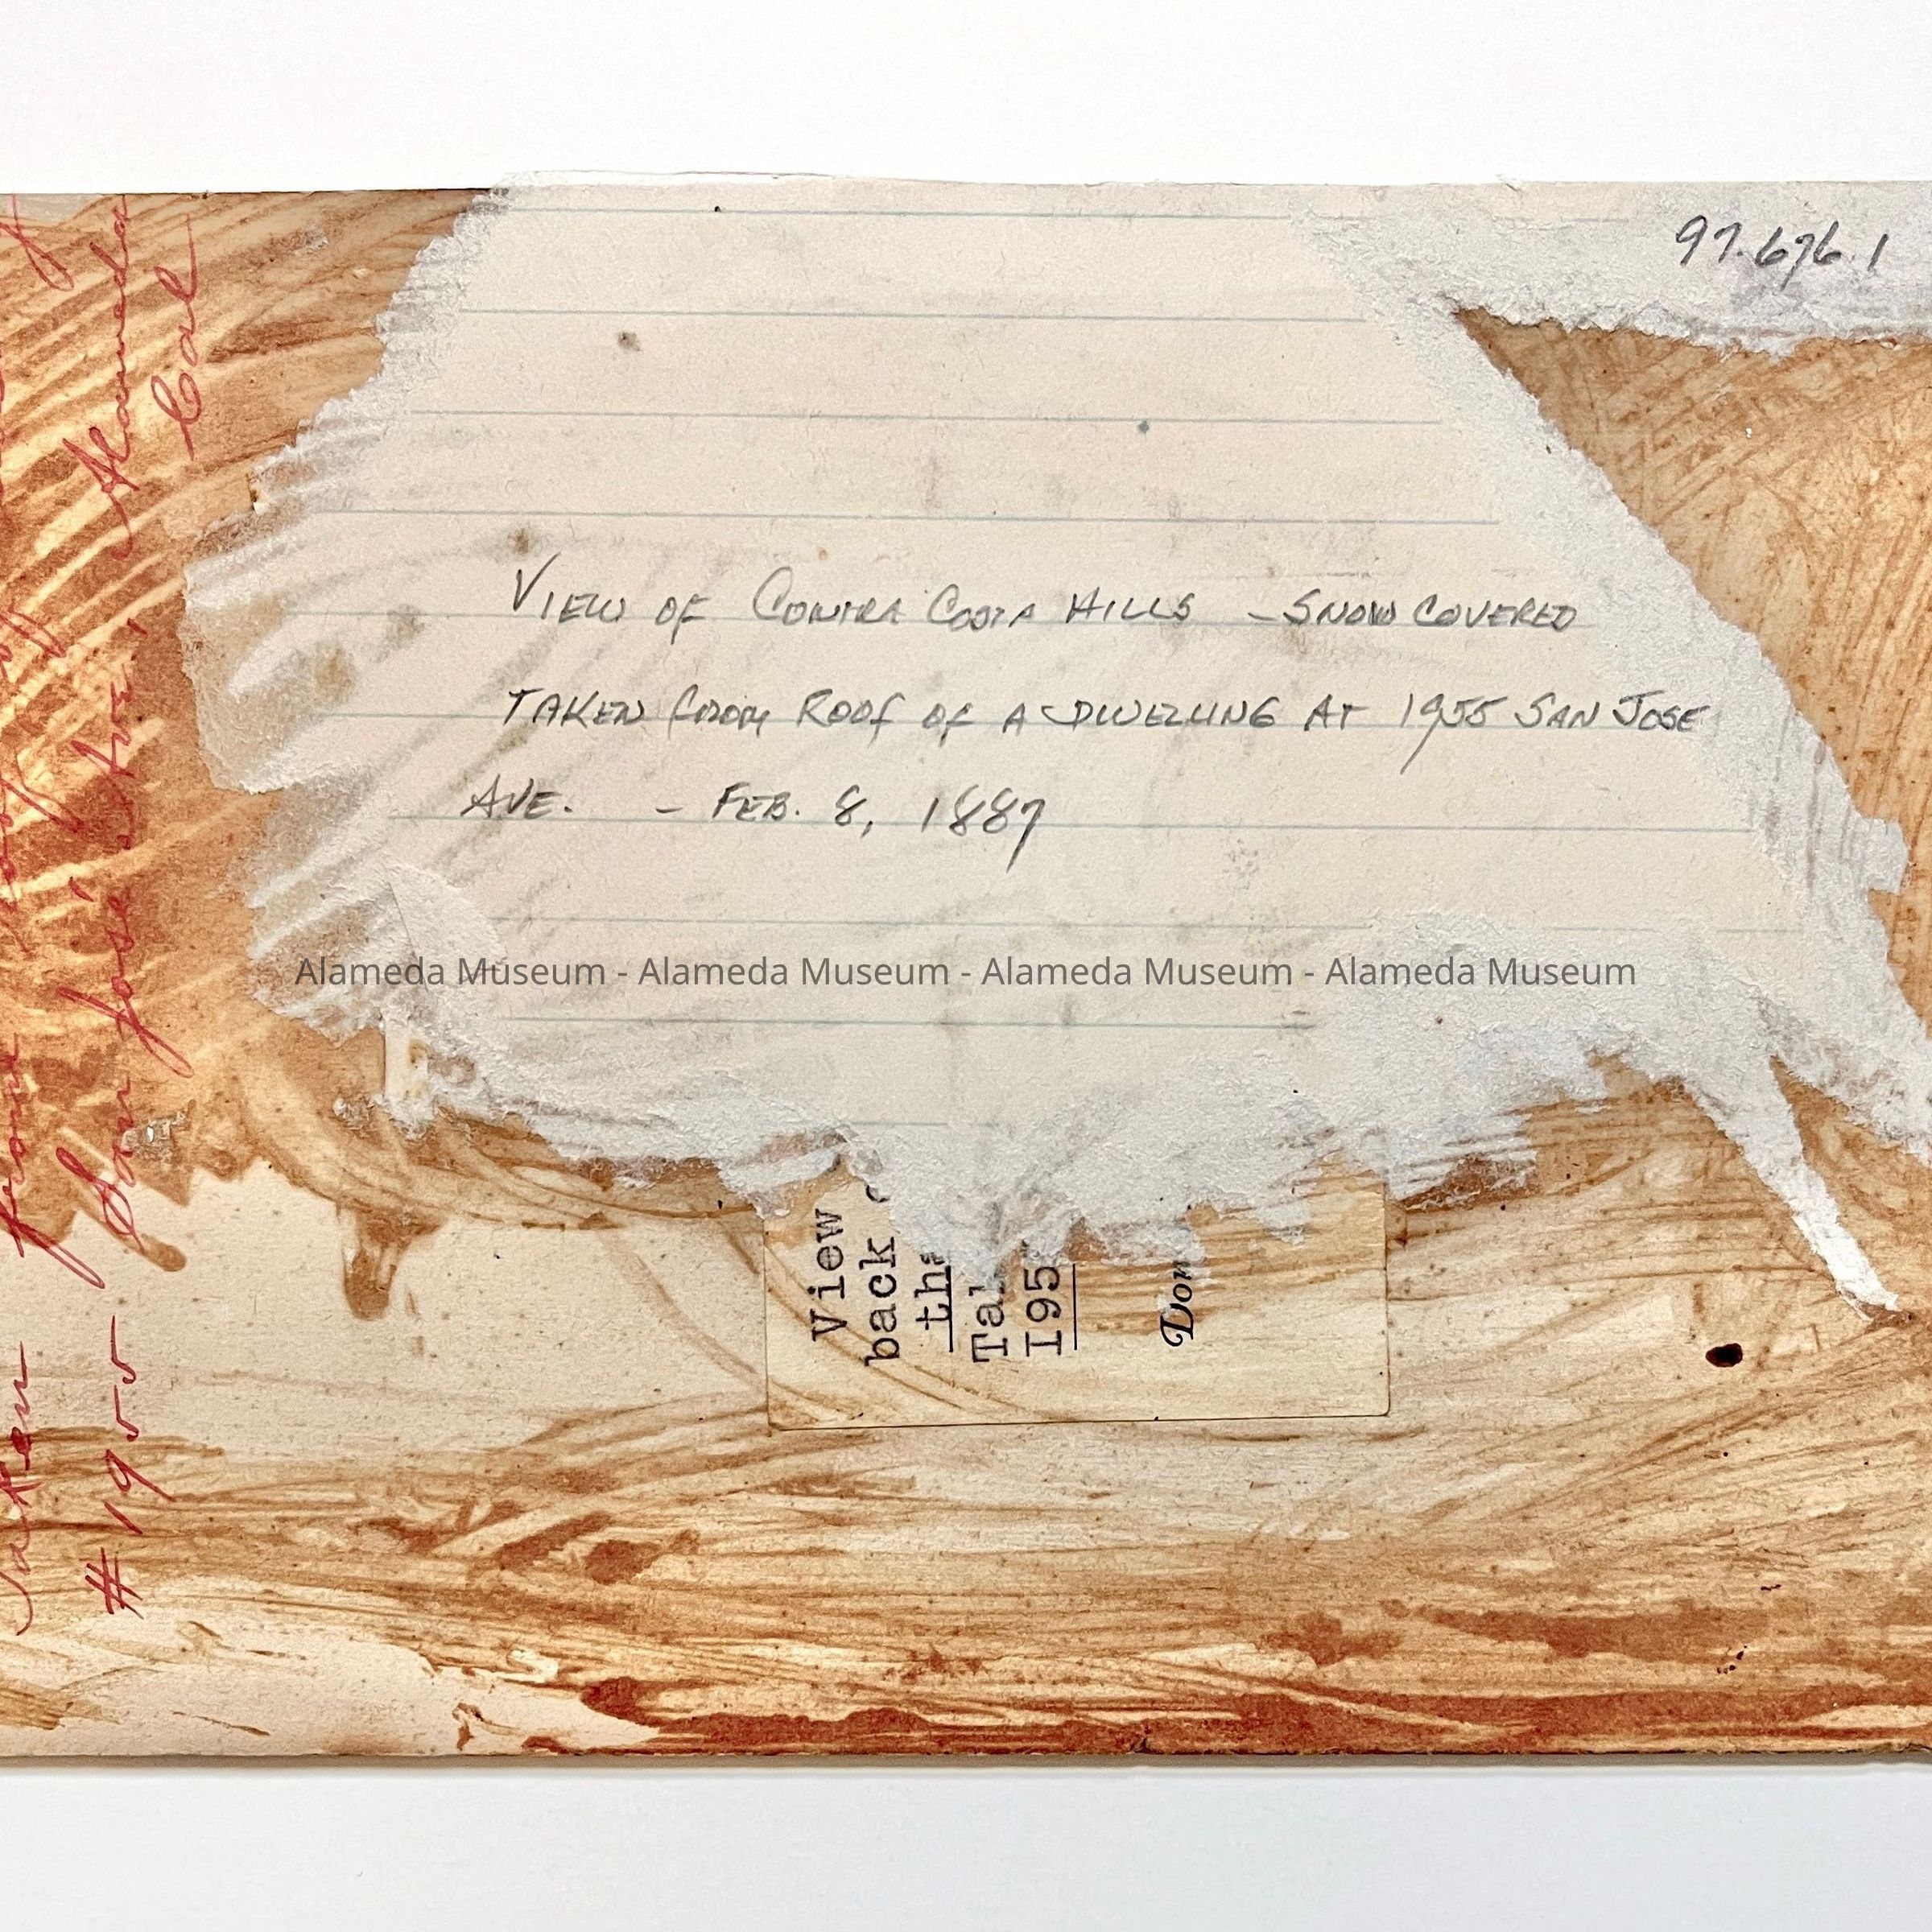 97.676.1
VIEW OF CONTRA COSTA HILLS - SNOW COVERED
TAKEN FROM ROOF OF A DWELLING AT 1955 SAN JOSE
AVE. - FEB. 8, 1887
Alameda Museum - Alameda Museum - Alameda Museum - Alameda Museum
Taken from roof of
#1955 San José Ave, Alameda
Cal
View
back
tha
Ta
I95
Don